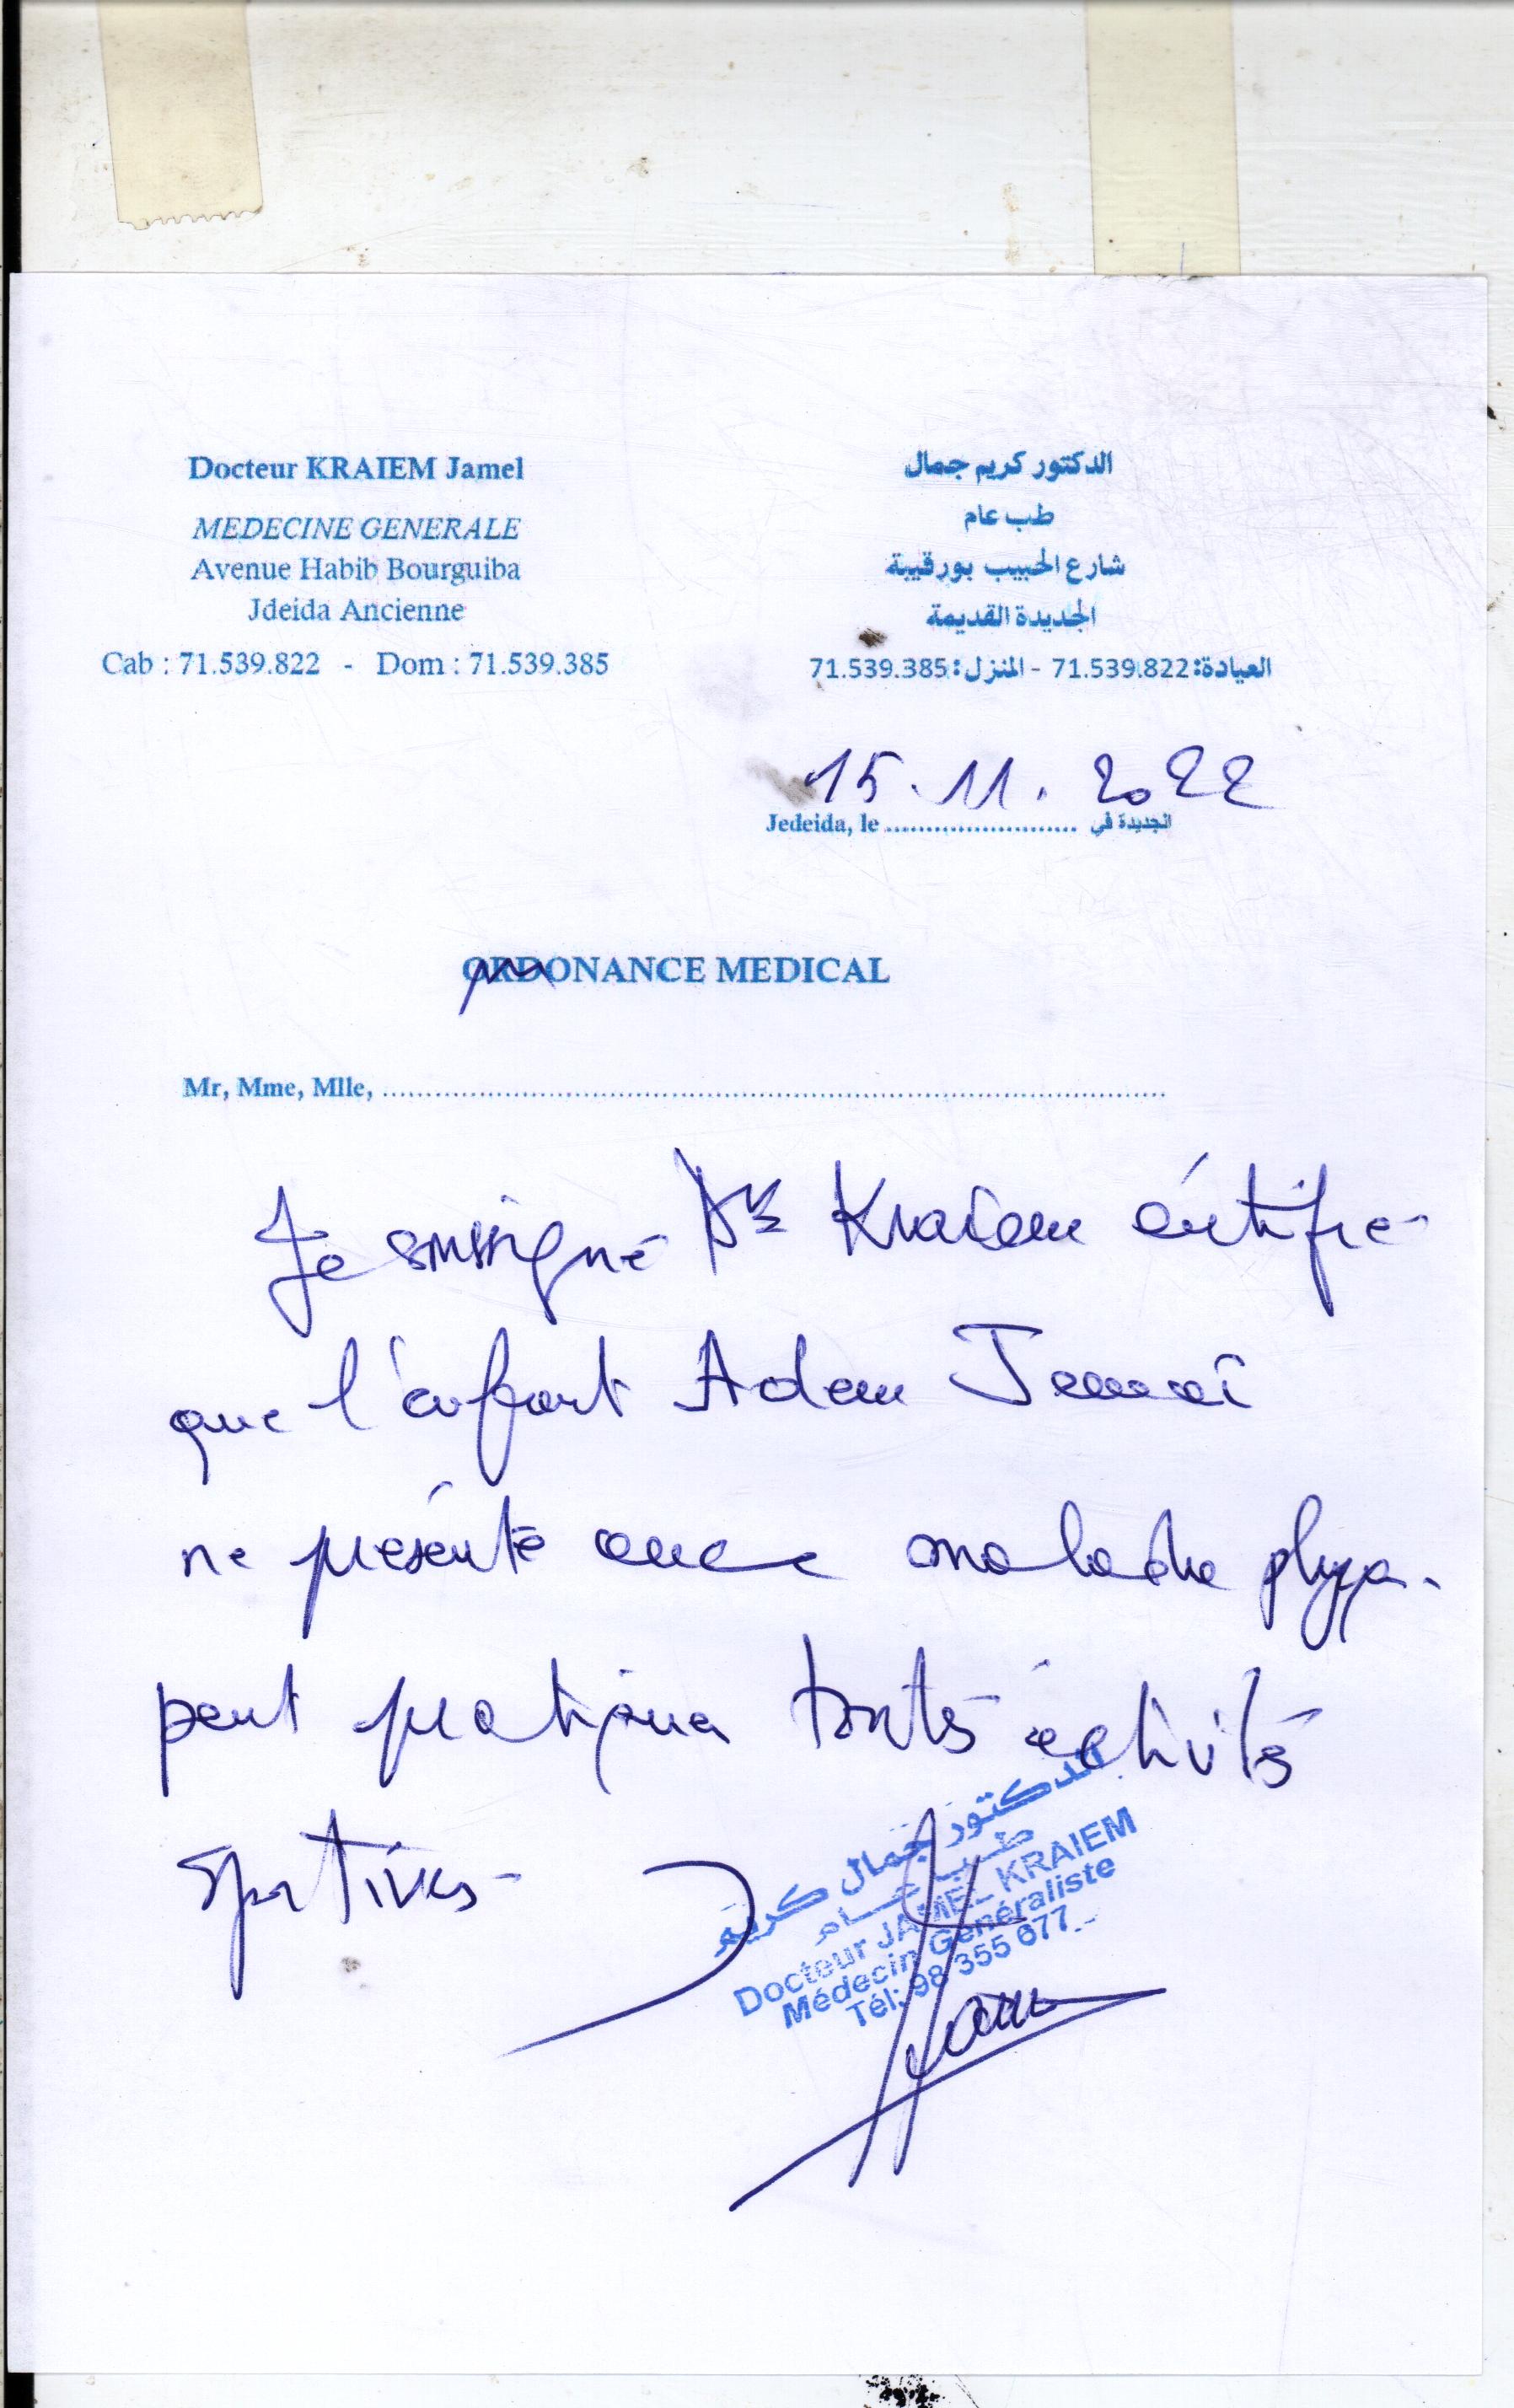 Docteur KRAIEM Jamel
MEDECINE GENERALE
Avenue Habib Bourguiba
Jdeida Ancienne
Cab : 71.539.822 - Dom : 71.539.385
الدكتور كريم جمال
طب عام
شارع الحبيب بورقيبة
الجديدة القديمة
العيادة: 71.539.822 - المنزل: 71.539.385
15.11.2022
Jedeida, le ........................ الجديدة في
ORDONANCE MEDICAL
Mr, Mme, Mlle, ................................................................
Je soussigné Dr Kraiem certifie
que l'enfant Adem
ne présente aucune maladie
peut pratiquer toutes activités
sportives.
الدكتور جمال كريم
طب عام
Docteur JAMEL KRAIEM
Médecin Généraliste
Tél: 98 355 677